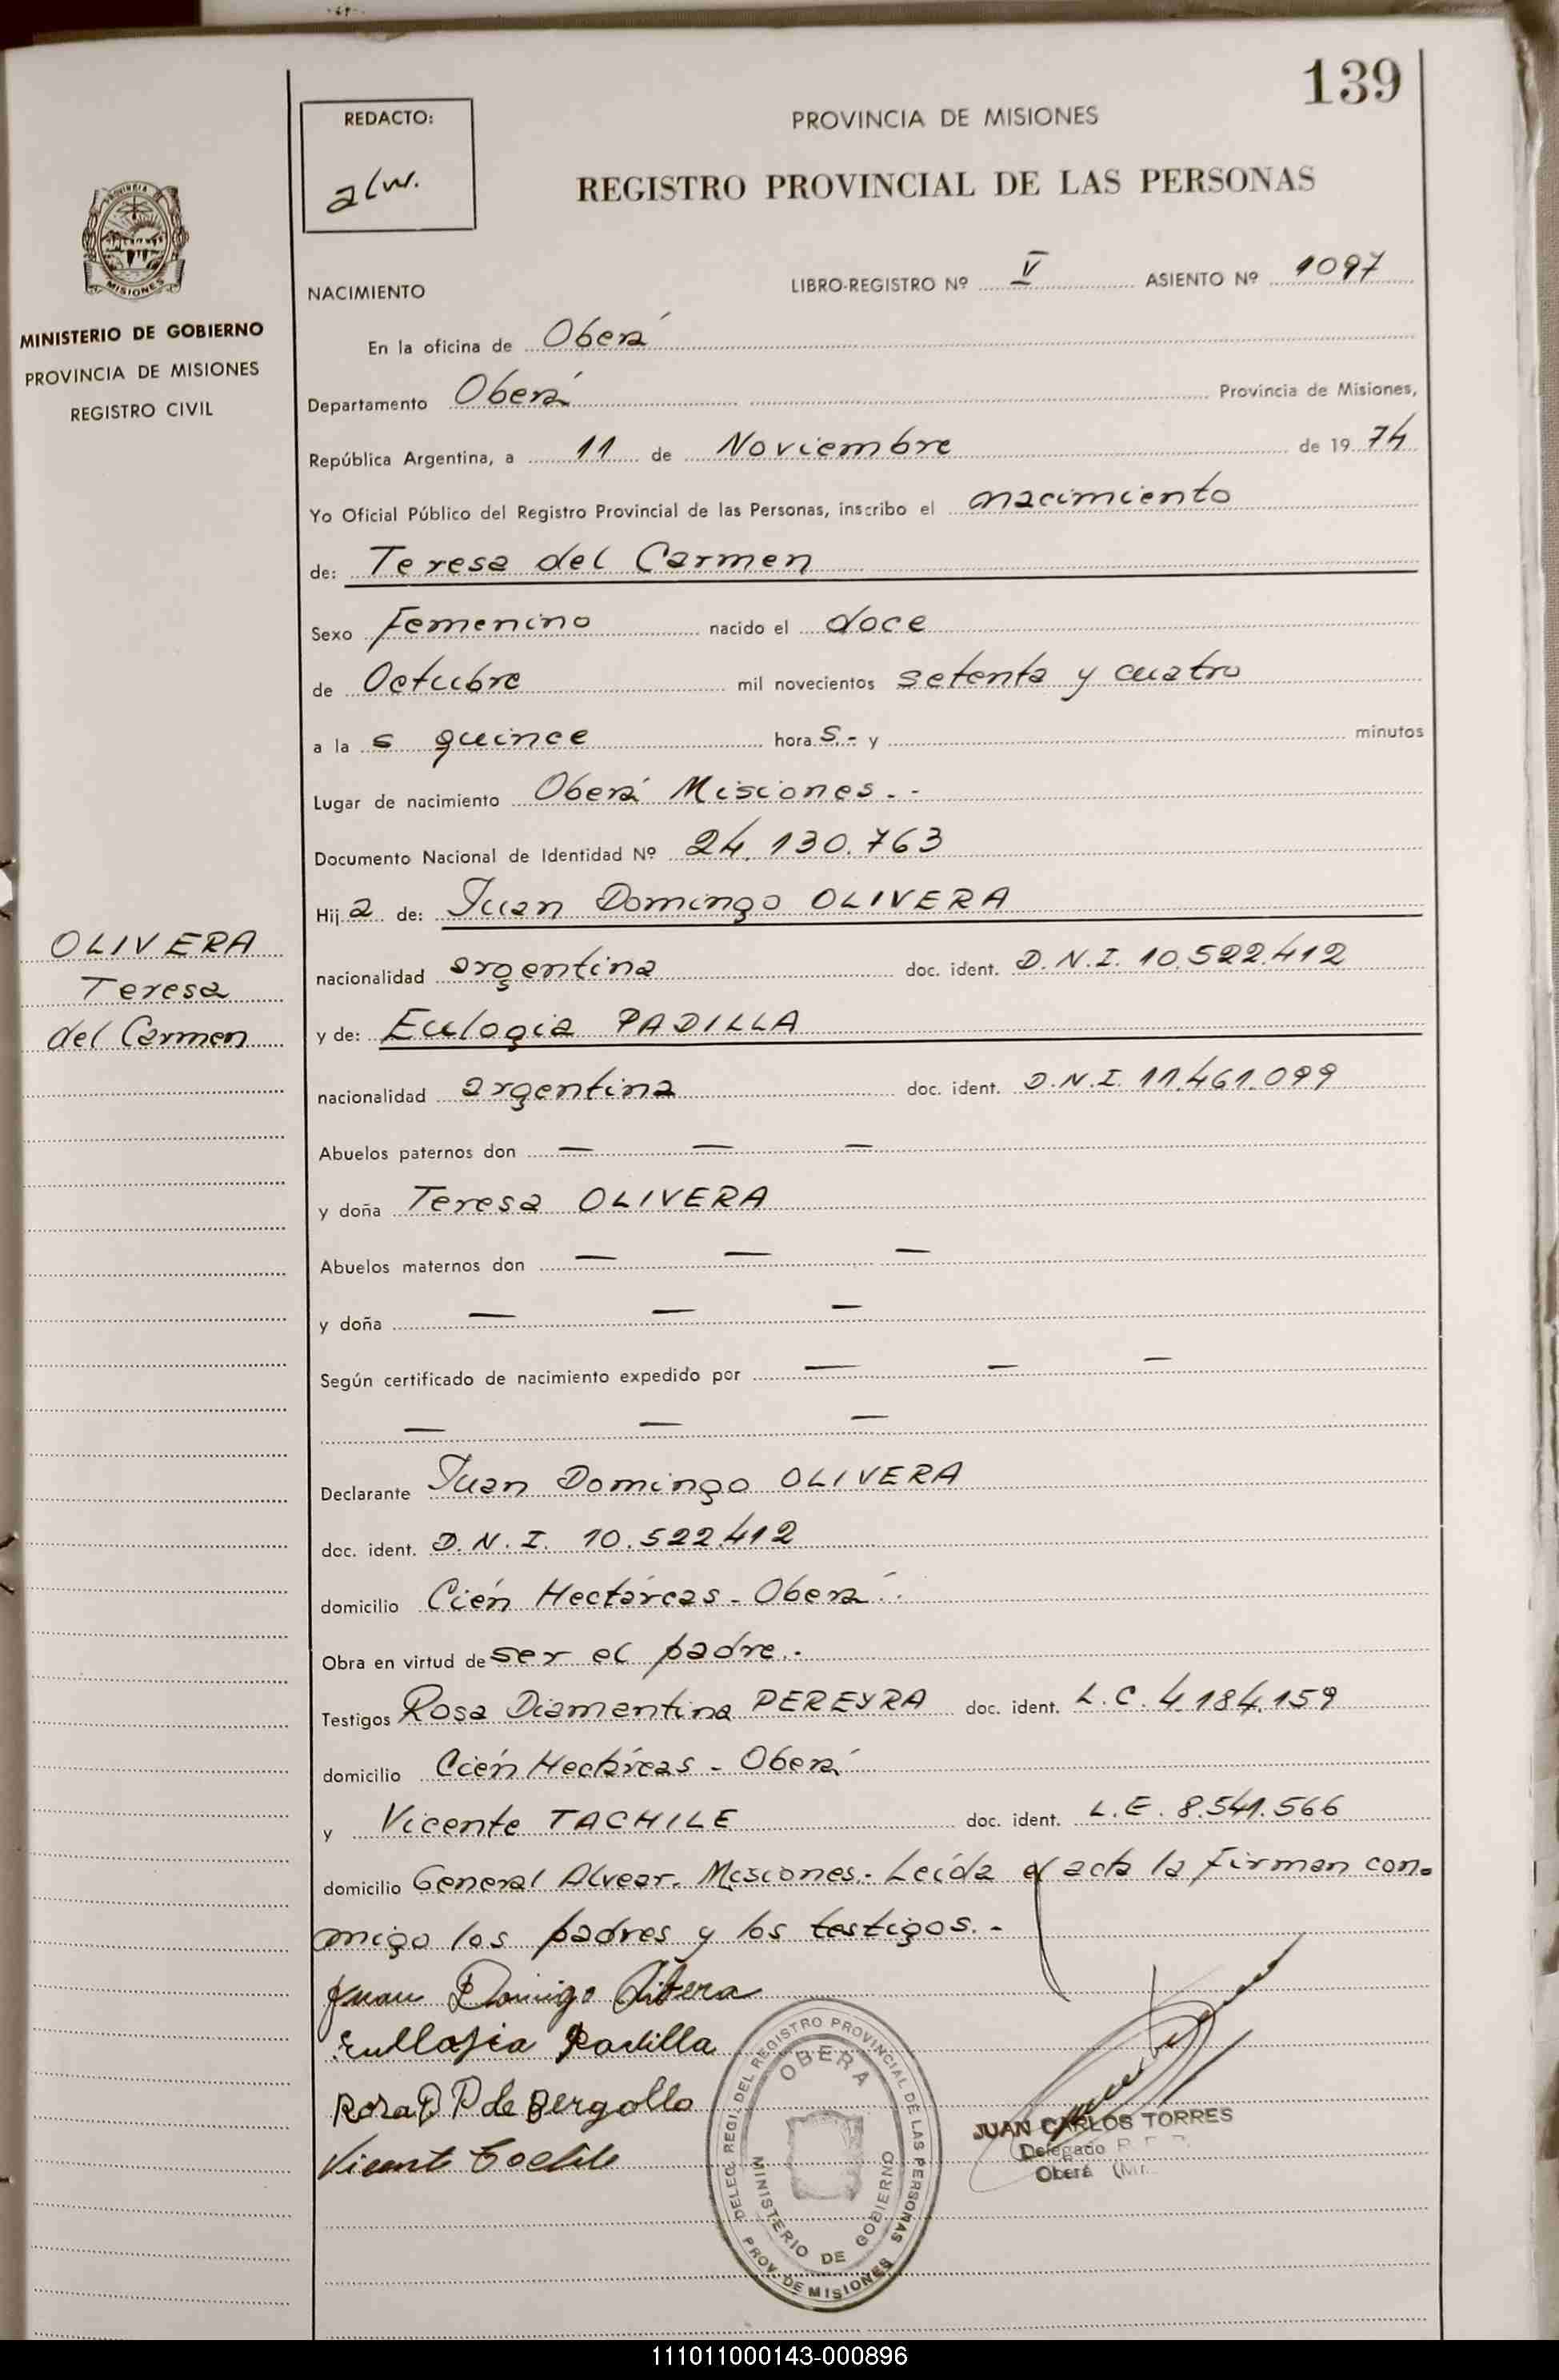 139
REDACTO:
alw.
PROVINCIA DE MISIONES
REGISTRO PROVINCIAL DE LAS PERSONAS
PROVINCIA
MISIONES
MINISTERIO DE GOBIERNO
PROVINCIA DE MISIONES
REGISTRO CIVIL
NACIMIENTO LIBRO-REGISTRO Nº V ASIENTO Nº 1097
En la oficina de Oberá
Departamento Oberá Provincia de Misiones,
República Argentina, a 11 de Noviembre de 1974
Yo Oficial Público del Registro Provincial de las Personas, inscribo el nacimiento
de: Teresa del Carmen
Sexo Femenino nacido el doce
de Octubre mil novecientos setenta y cuatro
a las quince horas.- y minutos
Lugar de nacimiento Oberá Misiones.-
Documento Nacional de Identidad Nº 24.130.763
Hija de: Juan Domingo OLIVERA
nacionalidad argentina doc. ident. D.N.I. 10.522.412
OLIVERA
Teresa
del Carmen
y de: Eulogia PADILLA
nacionalidad argentina doc. ident. D.N.I. 11.461.099
Abuelos paternos don — — —
y doña Teresa OLIVERA
Abuelos maternos don — — —
y doña — — —
Según certificado de nacimiento expedido por — — —
— — —
Declarante Juan Domingo OLIVERA
doc. ident. D.N.I. 10.522.412
domicilio Cién Hectáreas - Oberá.
Obra en virtud de ser el padre.-
Testigos Rosa Diamantina PEREYRA doc. ident. L.C. 4.184.159
domicilio Cién Hectáreas - Oberá
y Vicente TACHILE doc. ident. L.E. 8.541.566
domicilio General Alvear. Misiones.- Leída el acta la firman con-
migo los padres y los testigos.-
Juan Domigo Olivera
Eullogia Padilla
Rosa D P de Bergollo
Vicente
DELEG. REGI. DEL REGISTRO PROVINCIAL DE LAS PERSONAS
OBERA
MINISTERIO DE GOBIERNO
PROV. DE MISIONES
JUAN CARLOS TORRES
Delegado
Oberá
111011000143-000896